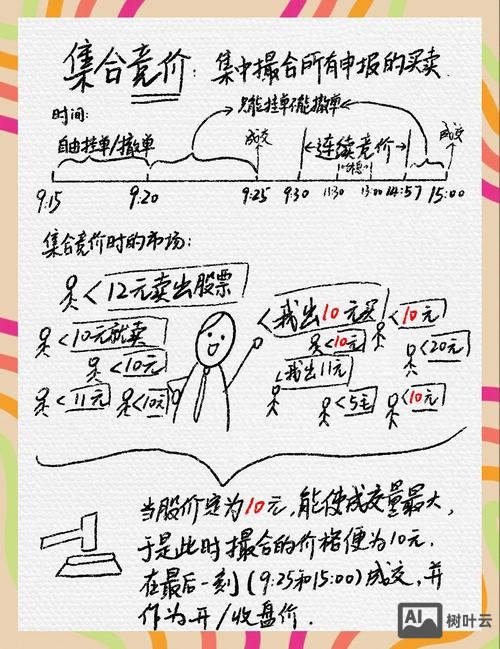 集合竞价：集中撮合所有申报的买卖.
只能挂单不能撤单
时间:
自由挂单/撤单
成交
<连续竞价>
成交
9:15 9:20 9:25 9:30 11:30 13:00 14:57 15:00
集合竞价时的市场:
<12元卖出股票
<10元就卖
<10元
<11元
<10元
<我出10元买
<10元
<10元
<20元
<我出11元
<5毛
<10元
当股价定为10元,能使成交量最大,
于是此时撮合的价格便为10元.
在最后一刻(9:25和15:00)成交,并
作为开/收盘价.
AI 树叶云